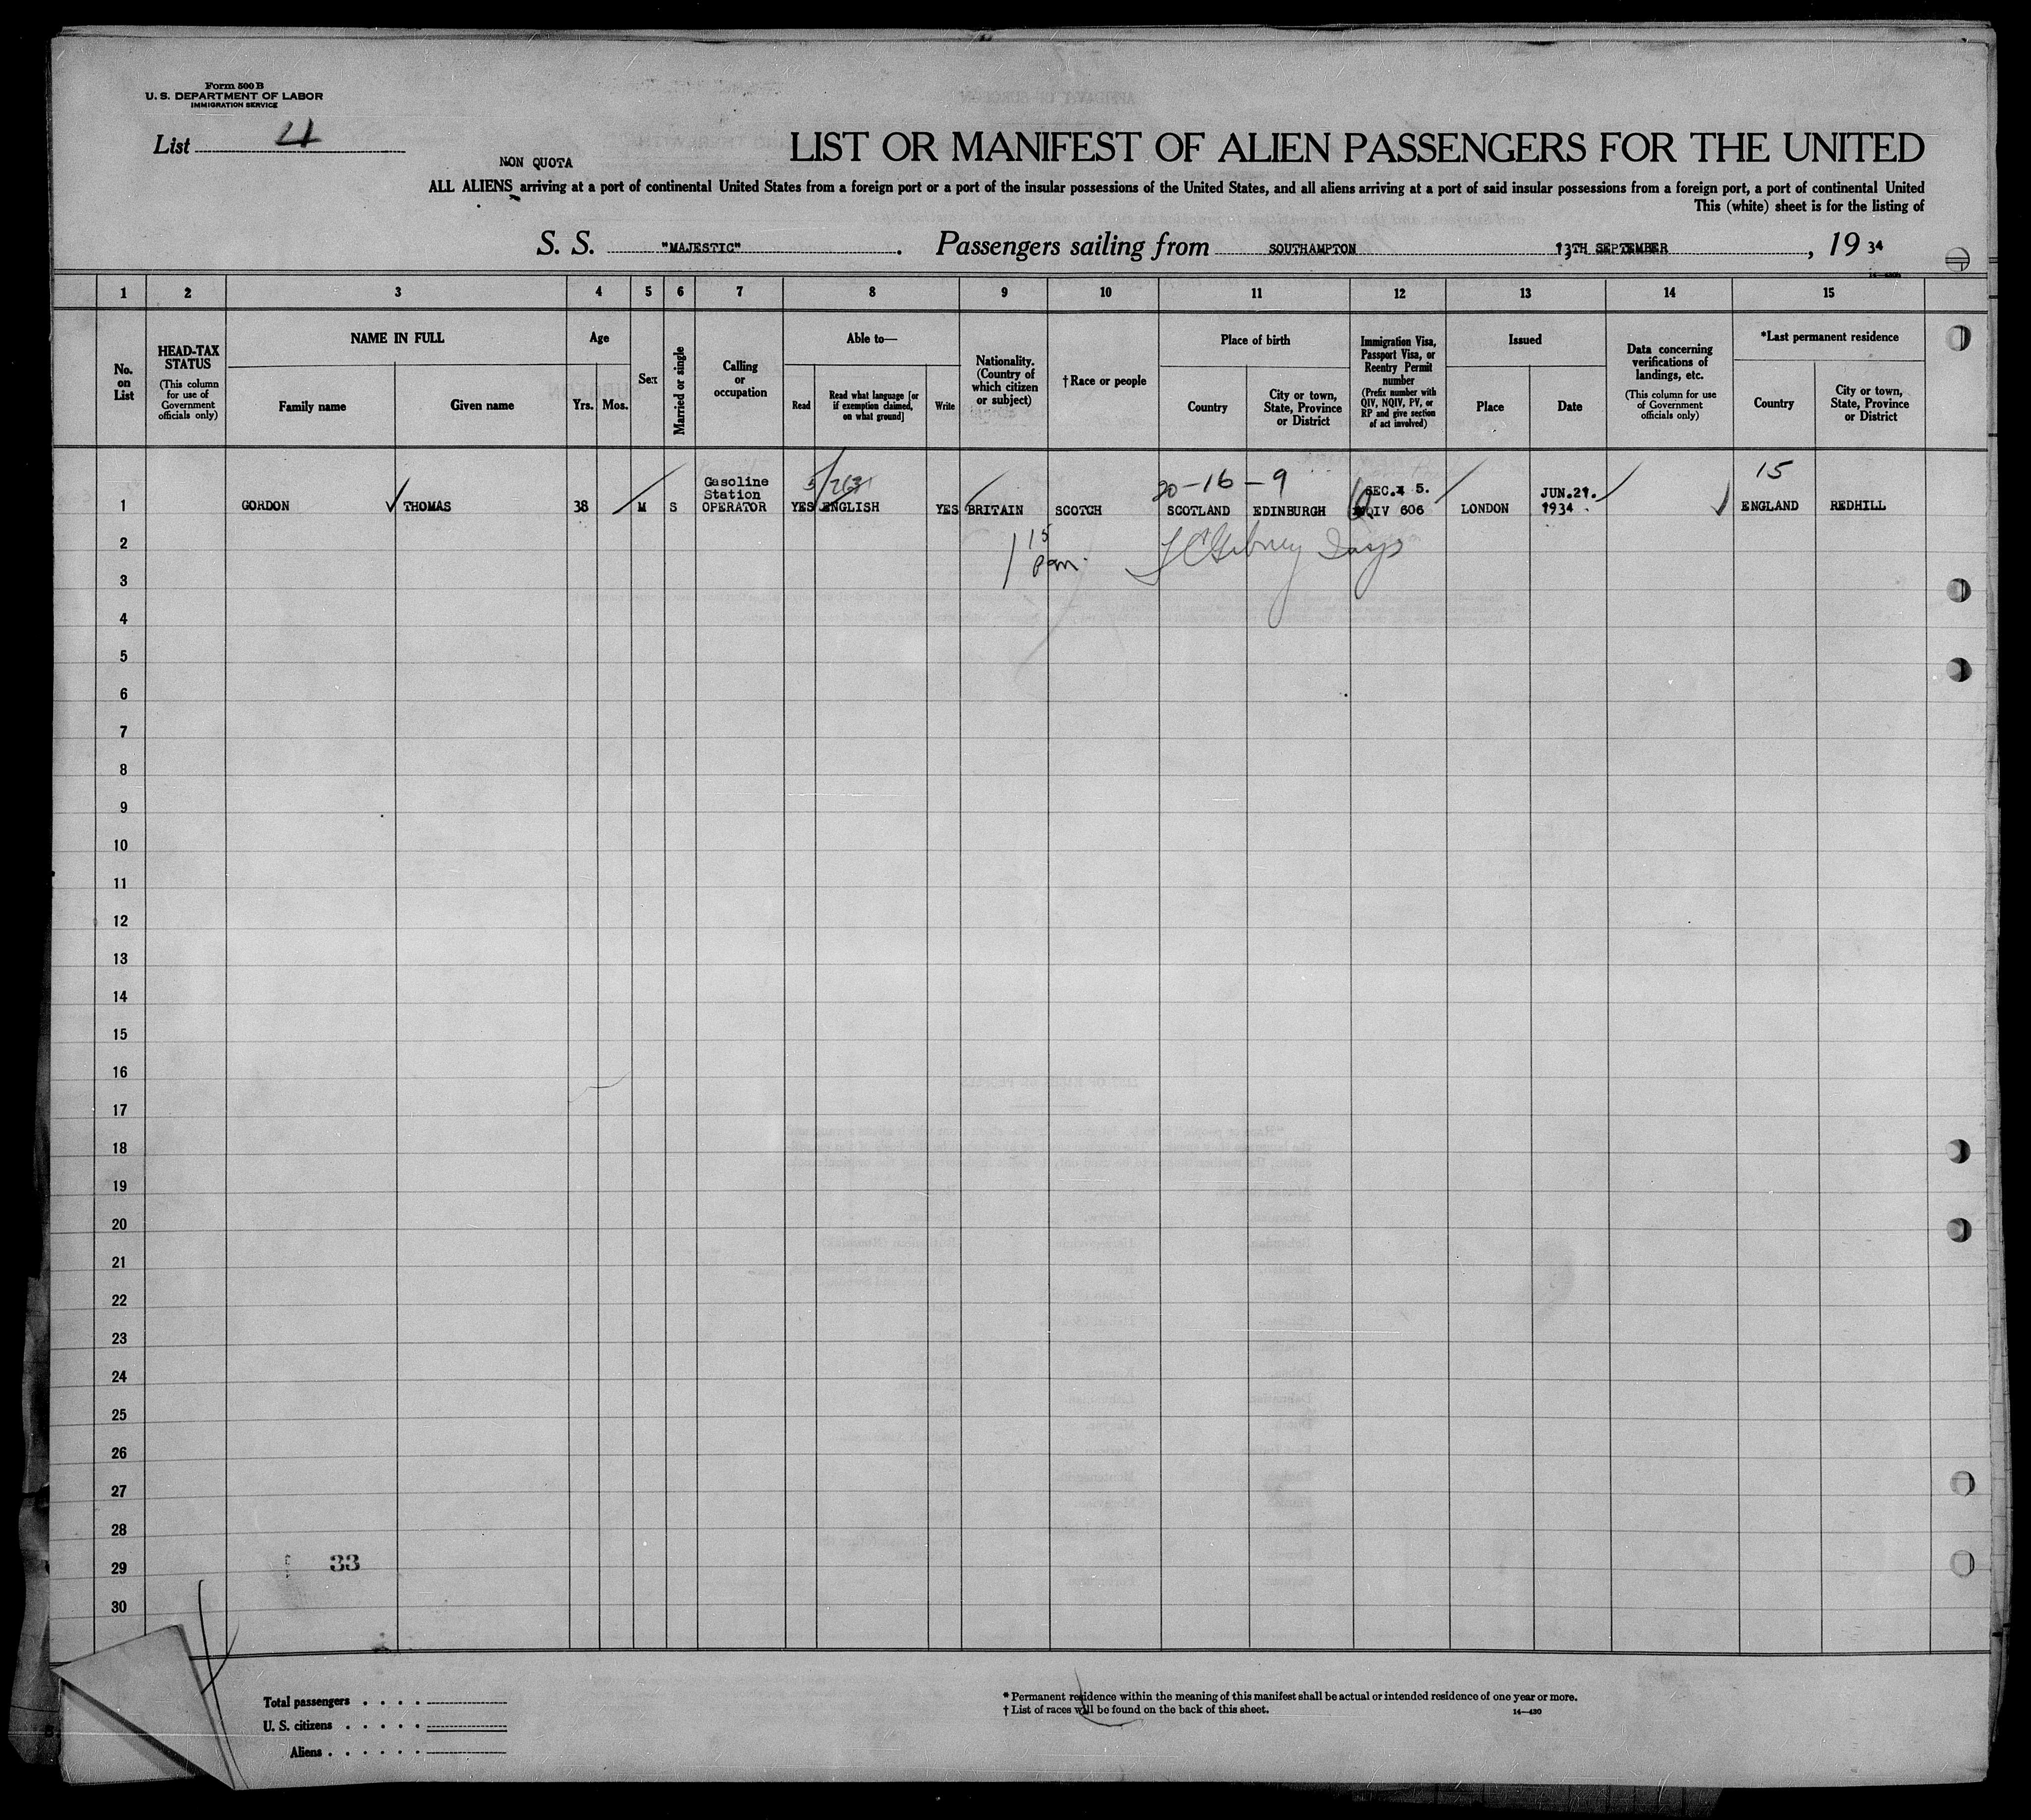 Form 500 B
U. S. DEPARTMENT OF LABOR
IMMIGRATION SERVICE
List 4
LIST OR MANIFEST OF ALIEN PASSENGERS FOR THE UNITED
NON QUOTA
ALL ALIENS arriving at a port of continental United States from a foreign port or a port of the insular possessions of the United States, and all aliens arriving at a port of said insular possessions from a foreign port, a port of continental United
This (white) sheet is for the listing of
S. S. "MAJESTIC". Passengers sailing from SOUTHAMPTON 13TH SEPTEMBER, 19 34
1 2 3 4 5 6 7 8 9 10 11 12 13 14 15
No. on List
HEAD-TAX STATUS
(This column for use of Government officials only)
NAME IN FULL
Family name
Given name
Age
Yrs. Mos.
Sex
Married or single
Calling or occupation
Able to—
Read
Read what language [or if exemption claimed, on what ground]
Write
Nationality. (Country of which citizen or subject)
†Race or people
Place of birth
Country
City or town, State, Province or District
Immigration Visa, Passport Visa, or Reentry Permit number
(Prefix number with QIV, NQIV, PV, or RP and give section of act involved)
Issued
Place
Date
Data concerning verifications of landings, etc.
(This column for use of Government officials only)
*Last permanent residence
Country
City or town, State, Province or District
20-16-9
15
1 GORDON THOMAS 38 M S Gasoline Station OPERATOR YES ENGLISH YES BRITAIN SCOTCH SCOTLAND EDINBURGH SEC.4 5. NQIV 606 LONDON JUN.21. 1934 ENGLAND REDHILL
2
3
4
5
6
7
8
9
10
11
12
13
14
15
16
17
18
19
20
21
22
23
24
25
26
27
28
29 33
30
Total passengers . . . .
U. S. citizens . . . . .
Aliens . . . . . .
* Permanent residence within the meaning of this manifest shall be actual or intended residence of one year or more.
† List of races will be found on the back of this sheet.
14—430